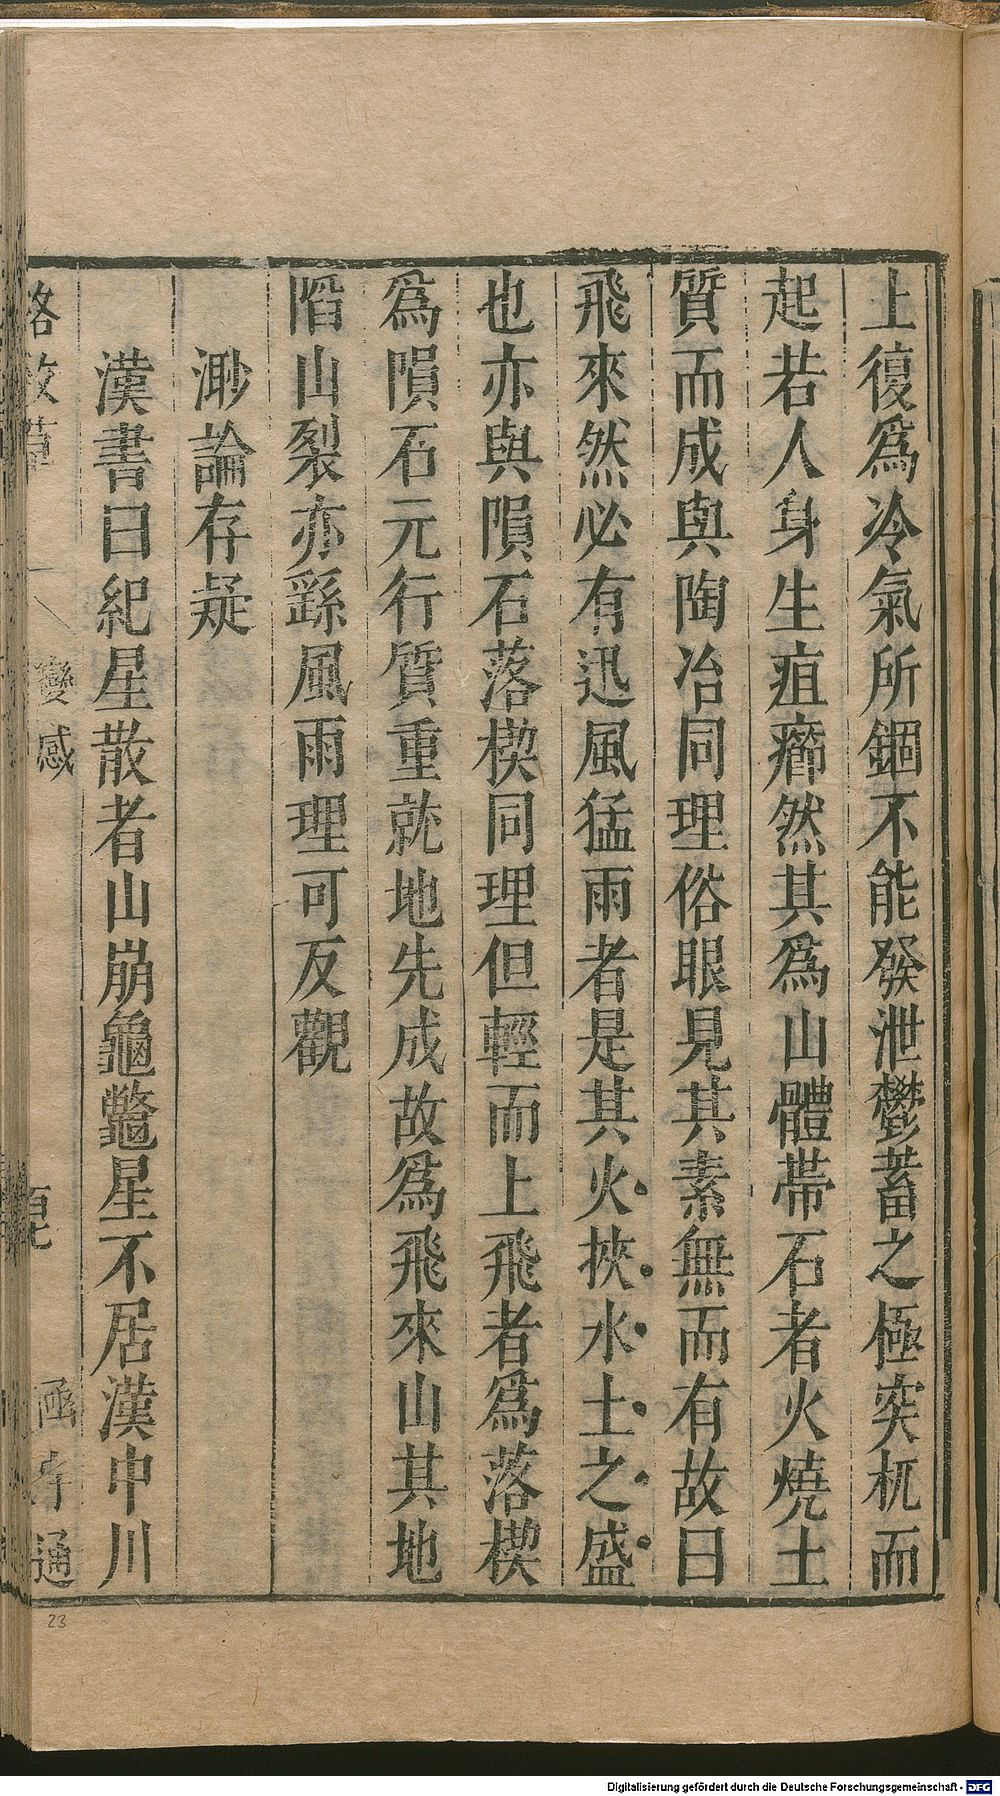 上復爲冷氣所錮不能發泄鬱蓄之極突杌而
起若人身生疽癤然其爲山體帶石者火燒土
質而成與陶冶同理俗眼見其素無而有故曰
飛來然必有迅風猛雨者是其火挾水土之盛
也亦與隕石落楔同理但輕而上飛者爲落楔
爲隕石元行質重就地先成故爲飛來山其地
㿝山裂亦繇風雨理可反觀
渺論存疑
漢書曰紀星散者山崩龜鼈星不居漢中川
格致草
變感
函宇通
23
Digitalisierung gefördert durch die Deutsche Forschungsgemeinschaft - DFG